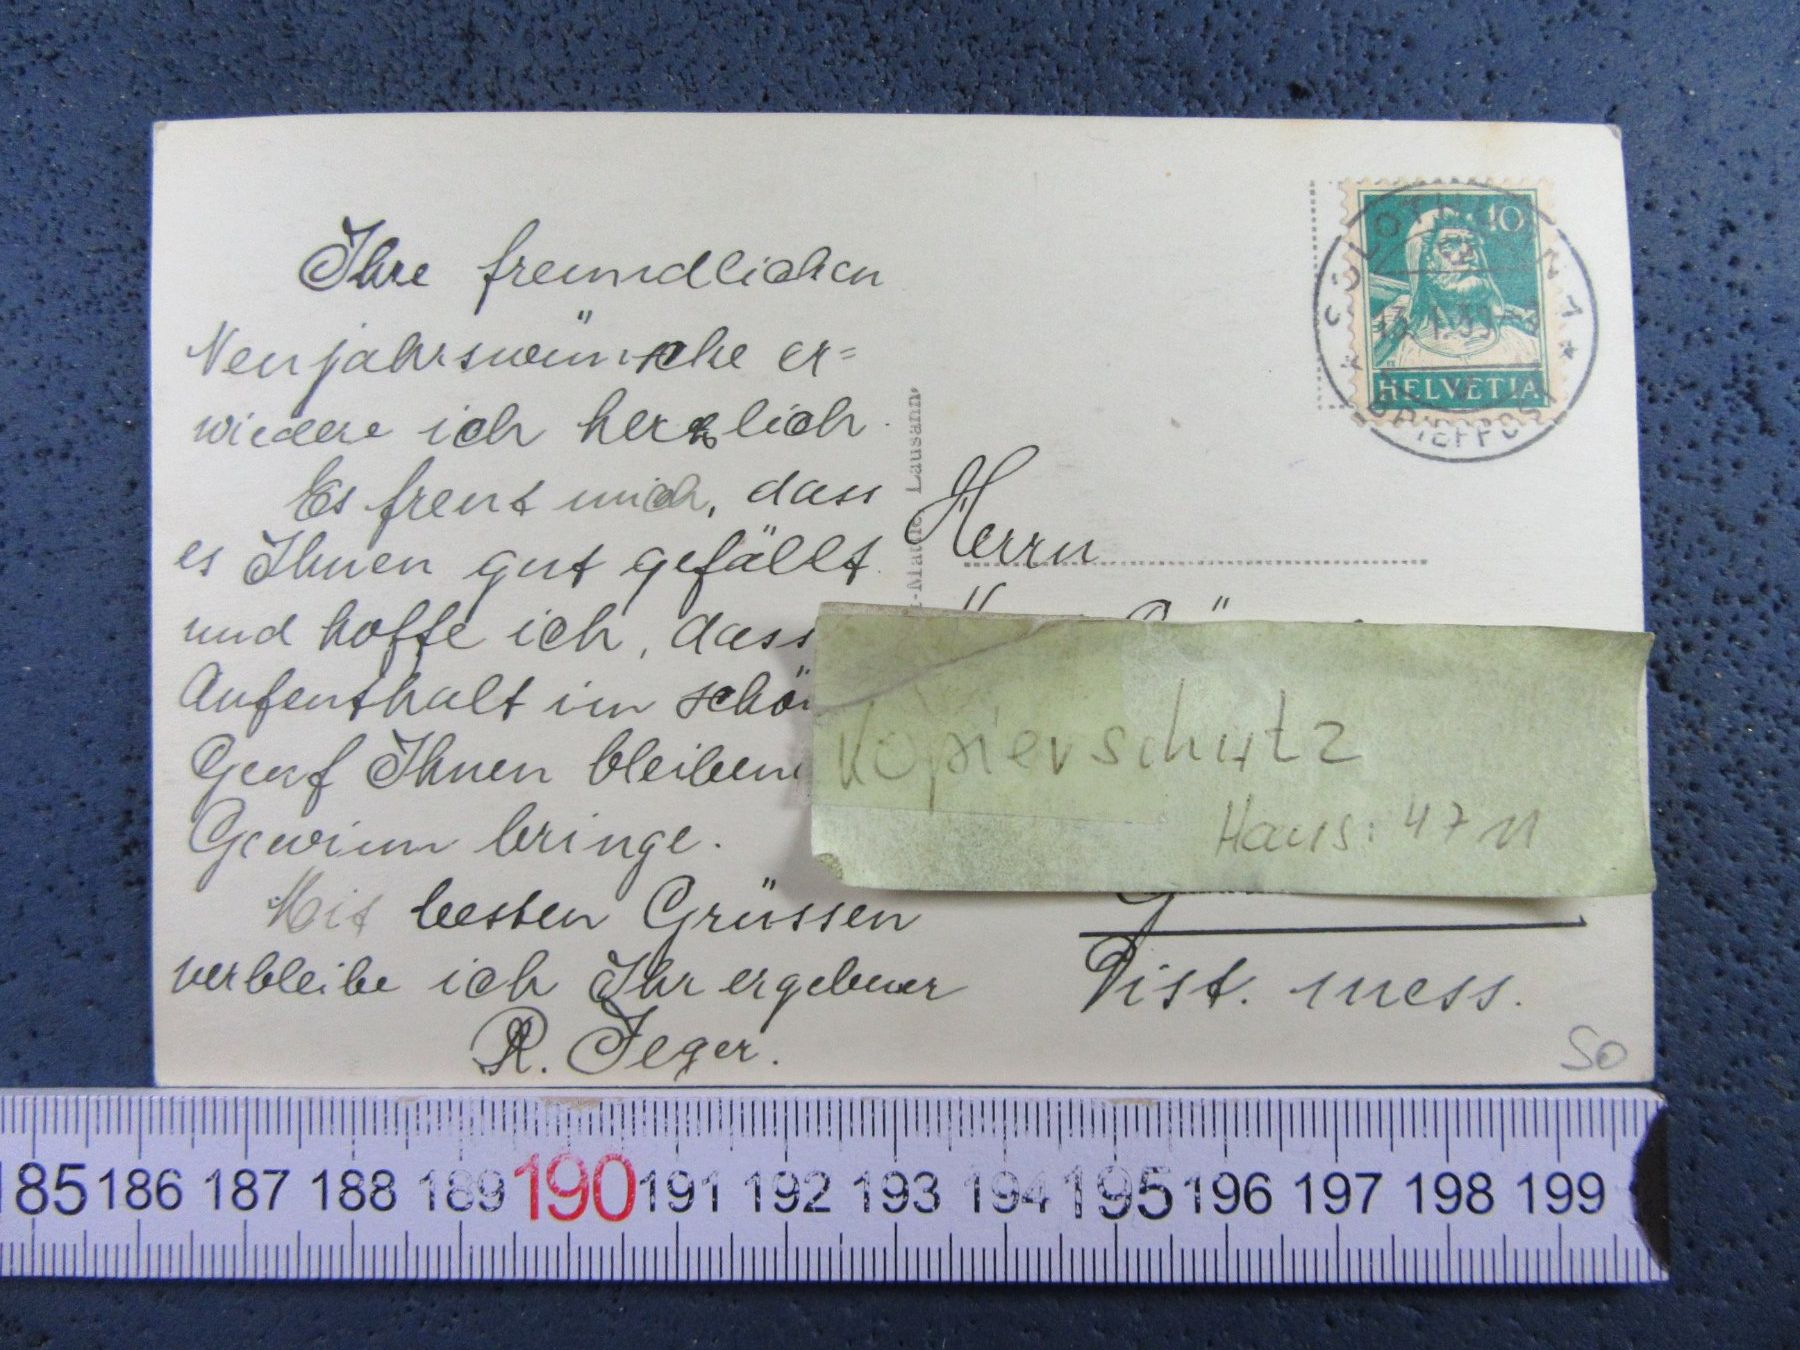 Ihre freundlichen
Neujahrswünsche er=
wiedere ich herzlich.
Es freut mich, dass
es Ihnen gut gefällt
und hoffe ich, dass
Aufenthalt im schö
Genf Ihnen bleiben
Gewinn bringe.
Mit besten Grüssen
verbleibe ich Ihr ergebener
R. Jeger.
Lausann
10
SOLOTHURN 1
HELVETIA
BRIEFPOST
Herrn
Kopierschutz
Haus: 4711
Dist. mess.
SO
185 186 187 188 189 190 191 192 193 194 195 196 197 198 199